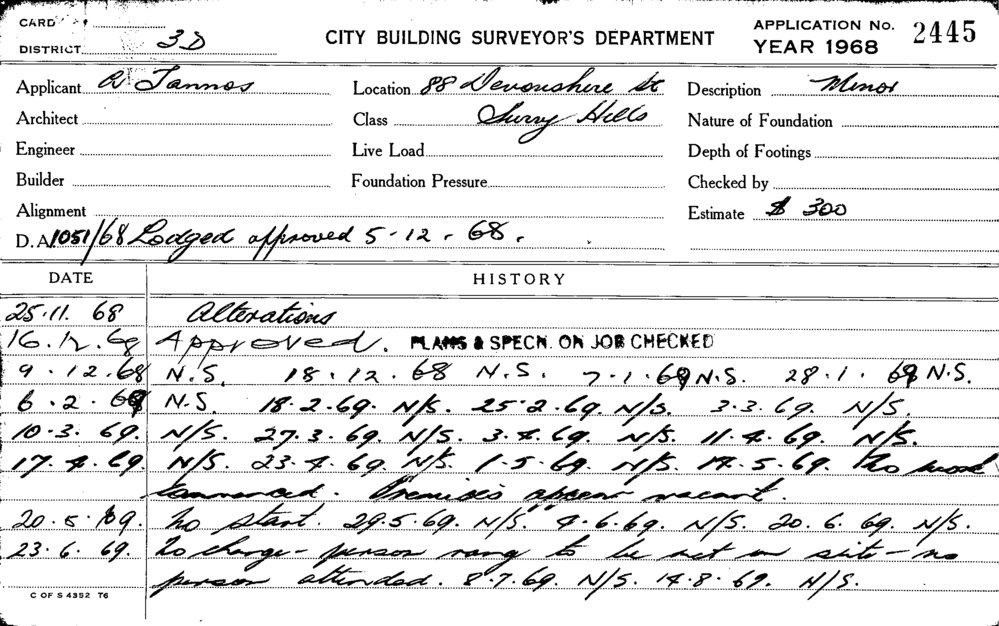 CARD
DISTRICT 3D
CITY BUILDING SURVEYOR'S DEPARTMENT
APPLICATION No. 2445
YEAR 1968
Applicant A Tannos
Location 88 Devonshire St
Description Minor
Architect
Class Surry Hills
Nature of Foundation
Engineer
Live Load
Depth of Footings
Builder
Foundation Pressure
Checked by
Alignment
Estimate $ 300
D.A. 1051/68 Lodged approved 5-12-68.
DATE HISTORY
25.11.68 Alterations
16.12.68 Approved. PLANS & SPECN. ON JOB CHECKED
9.12.68 N.S. 18.12.68 N.S. 7.1.69 N.S. 28.1.69 N.S.
6.2.69 N.S. 18.2.69. N/S. 25.2.69. N/S. 3.3.69. N/S.
10.3.69. N/S. 27.3.69. N/S. 3.4.69. N/S. 11.4.69. N/S.
17.4.69. N/S. 23.4.69. N/S. 1.5.69. N/S. 14.5.69. No work
commenced. Premises appear vacant.
20.5.69. No start. 29.5.69. N/S. 4.6.69. N/S. 20.6.69. N/S.
23.6.69. No change - person rang to be met on site - no
person attended. 8.7.69. N/S. 14.8.69. N/S.
C OF S 4392 T6